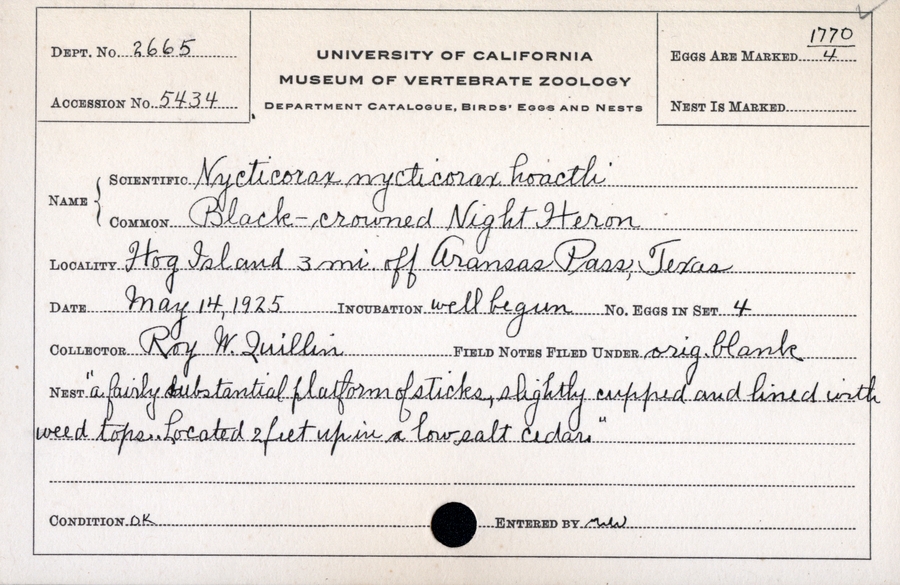 Dept. No. 2665
Accession No. 5434
UNIVERSITY OF CALIFORNIA
MUSEUM OF VERTEBRATE ZOOLOGY
Department Catalogue, Birds' Eggs and Nests
Eggs Are Marked 1770/4
Nest Is Marked
Name
Scientific Nycticorax nycticorax hoactli
Common Black-crowned Night Heron
Locality Hog Island 3 mi. off Aransas Pass, Texas
Date May 14, 1925 Incubation well begun No. Eggs in Set 4
Collector Roy W. Quillin Field Notes Filed Under orig. blank
Nest "a fairly substantial platform of sticks, slightly cupped and lined with
weed tops. Located 2 feet up in a low salt cedar."
Condition OK Entered by